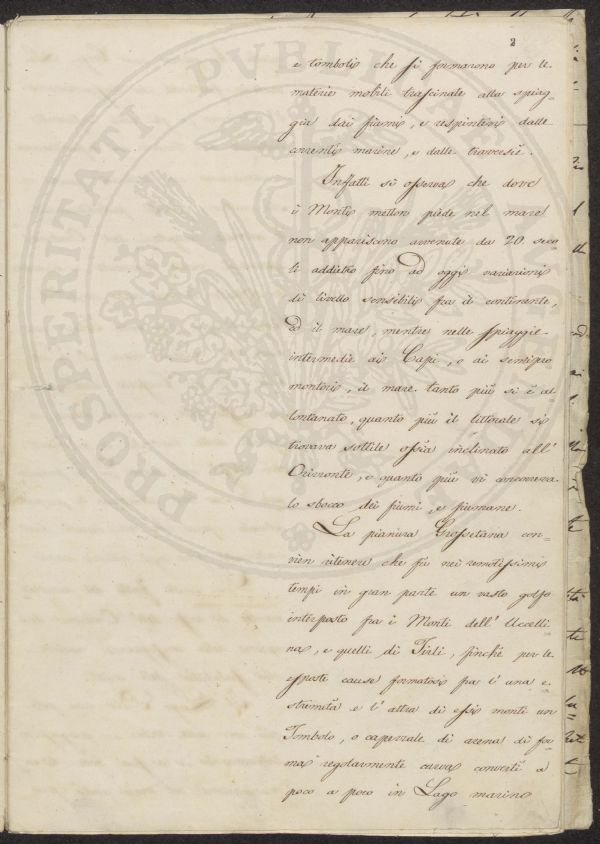 2
e tomboli che si formarono per le
materie mobili trascinate alla spiag-
gia dai fiumi, e respintevi dalle
correnti marine, e dalle traversie.
Infatti si osserva che dove
i Monti metton piede nel mare
non appariscono avvenute da 20. seco-
li addietro fino ad oggi variazioni
di livello sensibili fra il continente,
ed il mare, mentre nelle spiaggie
intermedie ai Capi, o ai semipro
montori, il mare tanto più si è al
lontanato, quanto più il littorale si
trovava sottile ossia inclinato all'
Orizzonte, e quanto più vi concorreva
lo sbocco dei fiumi, e fiumane.
La pianura Grossetana con-
vien ritenere che fù nei remotissimi
tempi in gran parte un vasto golfo
interposto fra i Monti dell' Uccelli
na, e quelli di Tirli, finchè per le
esposte cause formatosi fra l' una e-
stremità e l' altra di essi monti un
Tombolo, o capezzale di arena di for
ma regolarmente curva convertì a
poco a poco in Lago marino
PROSPERITATI PVBLICAE